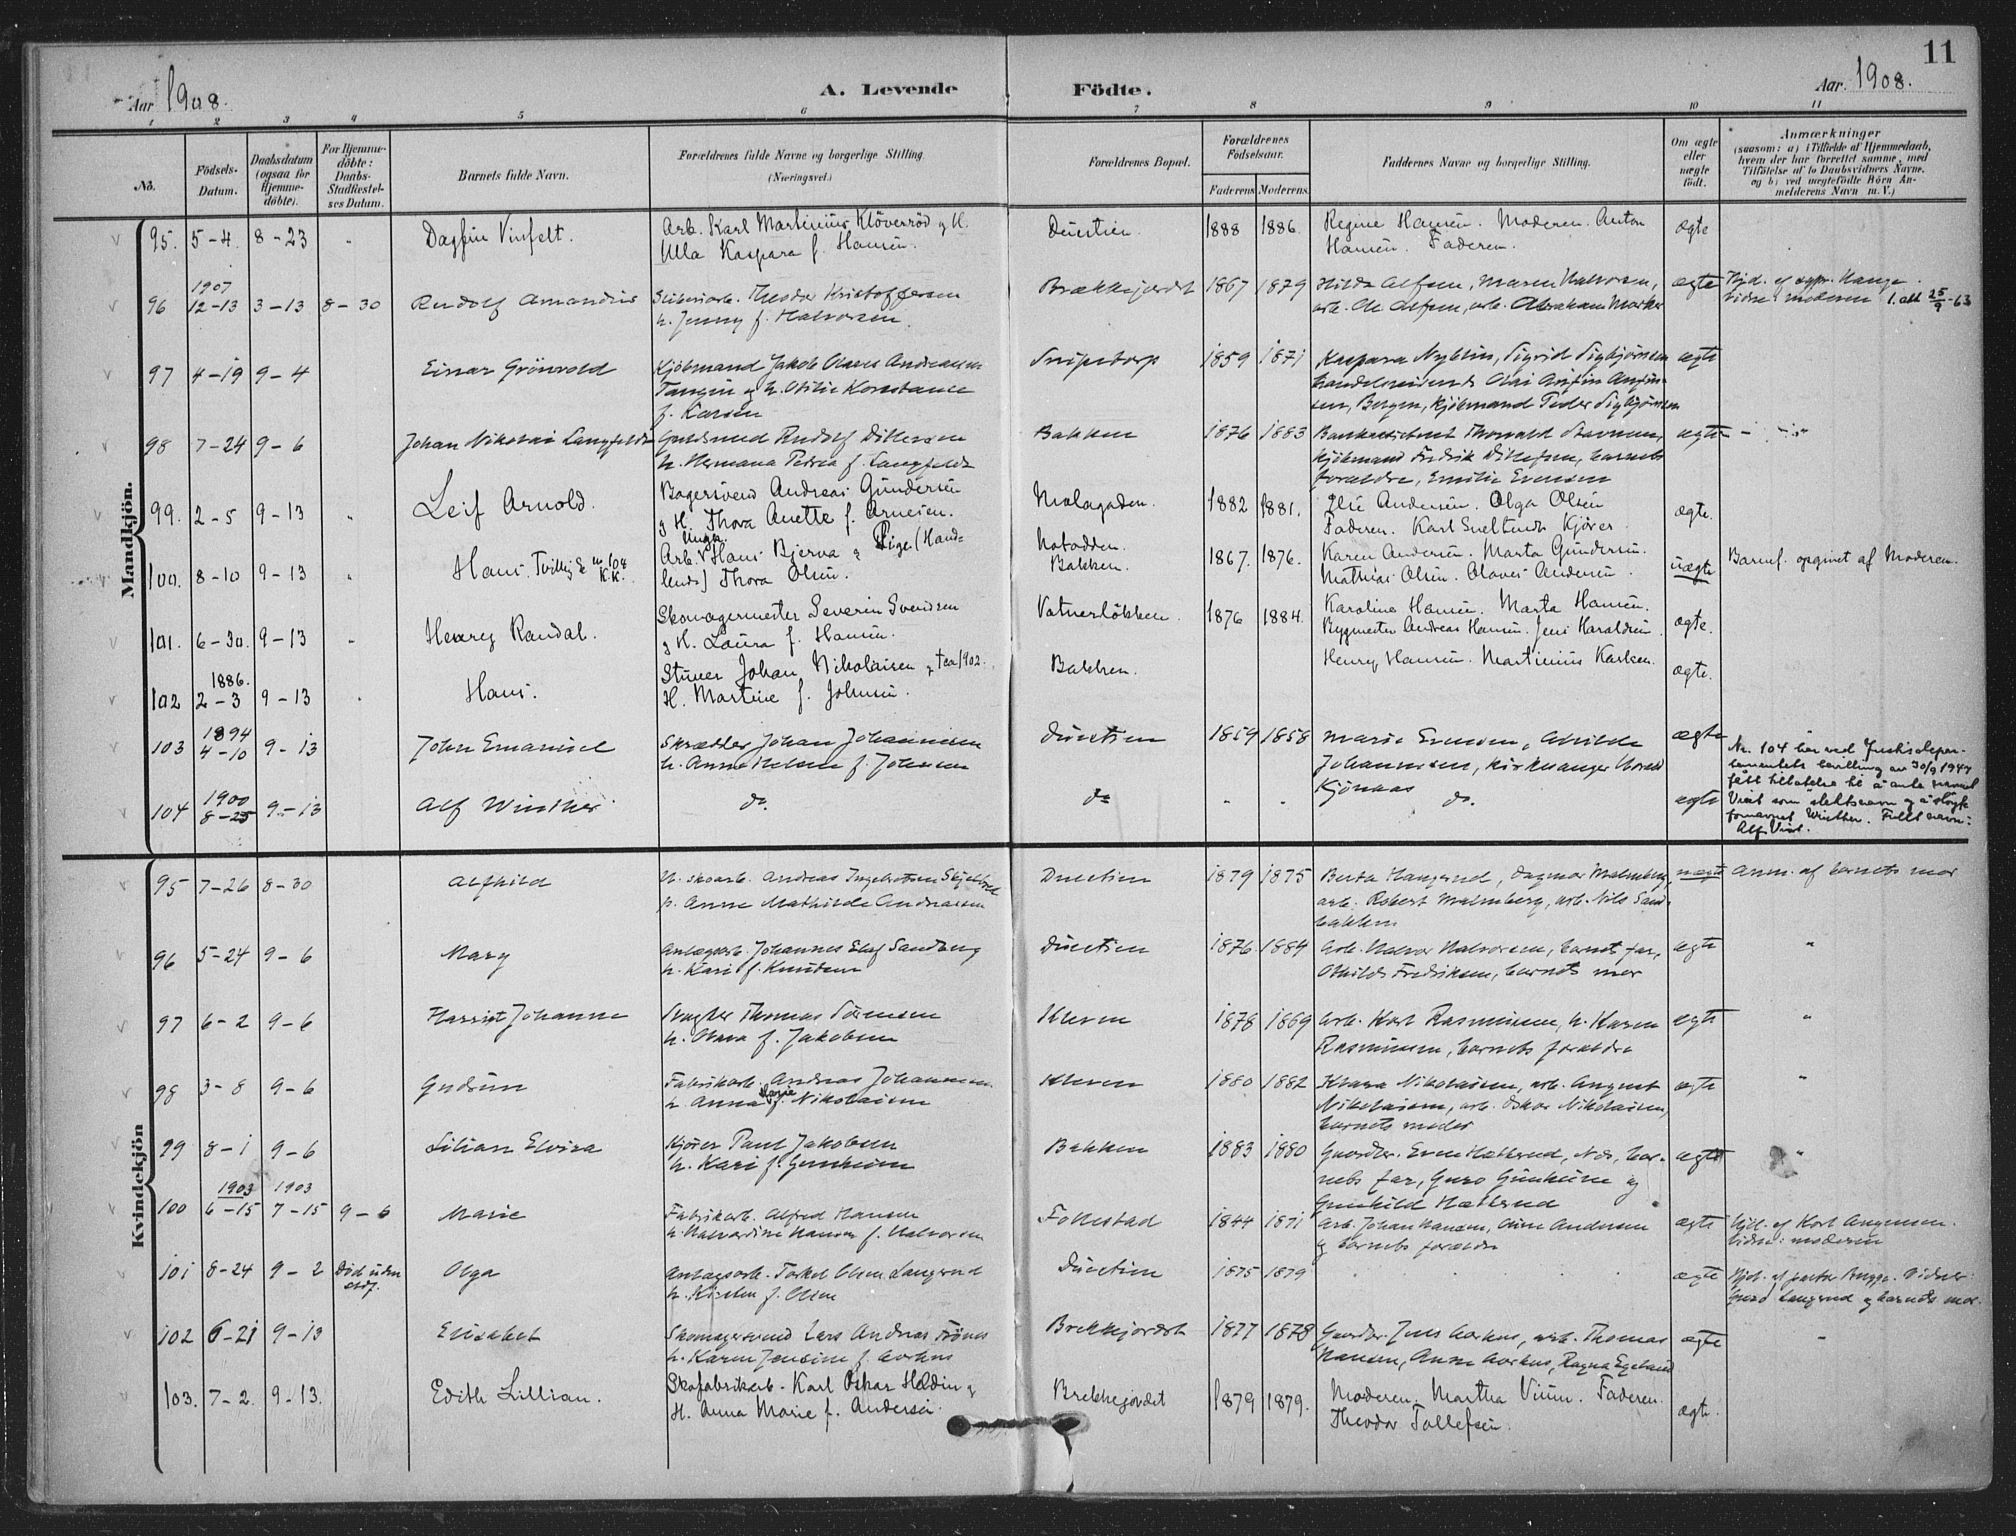 11
Aar 1908.
A. Levende
Födte.
Aar 1908.
1 2 3 4 5 6 7 8 9 10 11
No.
Födsels-Datum.
Daabsdatum (ogsaa for Hjemme-döbte).
For Hjemme-döbte: Daabs-Stadfæstel-ses Datum.
Barnets fulde Navn.
Forældrenes fulde Navne og borgerlige Stilling
(Næringsvei.)
Forældrenes Bopæl.
Forældrenes Födselsaar.
Faderens. Moderens.
Faddernes Navne og borgerlige Stilling.
Om ægte eller uægte födt.
Anmærkninger
(saasom: a) i Tilfælde af Hjemmedaab,
hvem der har forrettet samme, med
Tilföielse af to Daabsvidners Navne.
og b) ved uægtefödte Börn An-
melderens Navn m. V.)
Mandkjön.
95. 5-4. 8-23 " Dagfin Vinfelt. Arb. Karl Martinius Klöverröd og H. Duestien. 1888 1886. Regine Hansen. Moderen. Anton ægte
Ulla Kaspara f. Hansen. Hansen. Faderen.
1907
96 12-13 3-13 8-30 Rudolf Amandus Sliberiarb. Theodor Kristoffersen Brækkejordet 1867 1879 Hilda Olsen, Maren Halvorsen, ægte Hjd. af Hauge.
h. Jenny f. Halvorsen. arb. Ole Olsen, arb. Abraham Vidne: moderen l.att 25/9-63
97 4-19 9-4 Einar Grönvold Kjöbmand Jakob Olaus Andreassen Snipetorp 1859 1871 Kaspara Nyblin, Sigrid Sigbjörnsen ægte
Tangen og h. Otilie Konstance handelsreisende Olai
f. Larsen Bergen, kjöbmand Peder Sigbjörnsen
98 7-24 9-6 Johan Nikolai Langfeldt Guldsmed Rudolf Ditlefsen Bakken 1876 1883 Thorvald ægte "
h. Hermana Petrea f. Langfeldt kjöbmand Fredrik Ditlefsen, barnets
forældre, Emilie Evensen
99. 2-5 9-13 " Leif Arnold. Bagersvend Andreas Gundersen Malagaden. 1882 1881. Else Andersen. Olga Olsen ægte.
og H. Thora Anette f. Arnesen. Faderen. Karl Kjörer.
100. 8-10 9-13 " Hans. Tvilling & No 104 K.K. Arb. Ungk. Hans Bjerva og Pige (Hand- Notodden. Bakken. 1867. 1876. Karen Andersen. Marta Gundersen. uægte Barnef. opgivet af Moderen.
lende) Thora Olsen. Mathias Olsen. Olaves Andersen.
101. 6-30. 9-13 " Henry Randal. Skomagermester Severin Svendsen Vatnerløkken. 1876 1884. Karoline Hansen. Marta Hansen. ægte.
og H. Laura f. Hansen. Bygmester Andreas Hansen. Jens Haraldsen.
1886.
102 2-3 9-13 " Hans. Stuver Johan Nikolaisen og Bakken. Henry Hansen. Martinius Karlsen. ægte.
H. Martine f. Johnsen.
1894
103 4-10 9-13 John Emanuel Skrædder Johan Johannesen Duestien 1859 1858 Marie Evensen, Mathilde ægte
h. Anne Helene f. Johnsen Johannessen, kirkesanger Harald
Kjönaas
1900
104 8-25 9-13 Alf Winther do. do " " do. ægte
Nr. 104 har ved Justisdepar-
tementets bevilling av 30/9 1947
fått tillatelse til å anta navnet
Vist som slektsnavn og å sløyfe
fornavnet Winther. Fullt navn:
Alf Vist.
Kvindekjön
95 7-26 8-30 Alfhild U. skoarb. Andreas Ingebretsen Duestien 1879 1875 Berta Haugerud, Dagmar Malmberg, uægte Anm. af barnets mor
p. Anne Mathilde Andreassen arb. Robert Malmberg, arb. Nils Sand-
bakken
96 5-24 9-6 Mary Anlægsarb. Johannes Elof Sandberg Duestien 1876 1884 Arb. Halvor Halvorsen, barnets far, ægte "
h. Kari f. Knudsen Fredriksen, barnets mor
97 6-2 9-6 Harriet Johanne Slagter Thomas Sörensen Kleven 1878 1869 Arb. Karl Rasmussen, h. Karen ægte "
h. f. Jakobsen Rasmussen, barnets forældre
98 3-8 9-6 Gudrun Fabrikarb. Andreas Johannesen Kleven 1880 1882 Klara Nikolaisen, arb. August ægte "
h. Anna Marie f. Nikolaisen Nikolaisen, arb. Oskar Nikolaisen,
barnets moder
99 8-1 9-6 Lilian Elvira Kjörer Paul Jakobsen Bakken 1883 1880 Gaardbr. Even Hætterud, Næs, bar- ægte "
h. Kari f. Gunheim nets far, Guro Gunheim og
Gunhild Hætterud
1903 1903
100 6-15 7-15 9-6 Marie Fabrikarb. Alfred Hansen Follestad 1844 1871 Arb. Johan Hansen, Andersen ægte Hjd. af Karl
h. Halvardine Hansen f. Halvorsen og barnets forældre Vidne: moderen
101 8-24 9-2 Död uden stdf. Olga Anlægsarb. Torkel Olsen Langerud Duestien 1875 1879 " " ægte Hjd. af pastor Vidner:
h. Kirsten f. Olsen Guro Langerud og barnets mor.
102 6-21 9-13 Elisabet Skomagersvend Lars Andreas Trönes Brekkejordet 1877 1878 Gaardbr. Jens Aarhus, arb. Thomas ægte "
h. Karen Jensine f. Aarhus Hansen, Anne Aarhus, Ragna Egeland
103. 7-2. 9-13. Edith Lillian. Skofabrikarb. Karl Oskar Heldin og Brekkejordet 1879 1879. Moderen. Martha Faderen. ægte.
H. Anna Marie f. Andersen. Theodor Tollefsen.